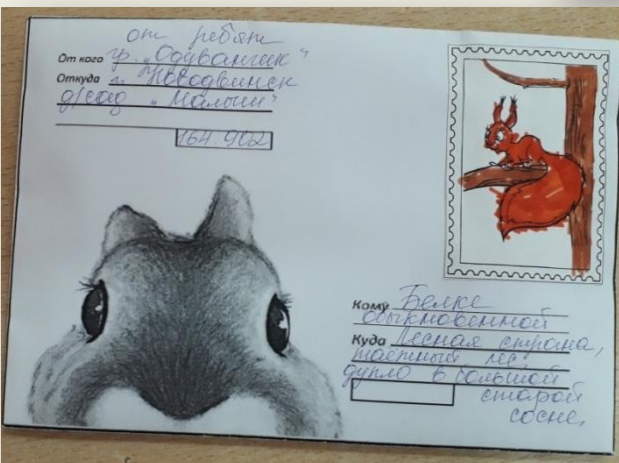 от ребят
От кого гр. „Одуванчик"
Откуда г. Новодвинск
д/сад „Малыш"
164.902
Кому Белке
обыкновенной
Куда Лесная страна,
таёжный лес
дупло в большой
старой
сосне.